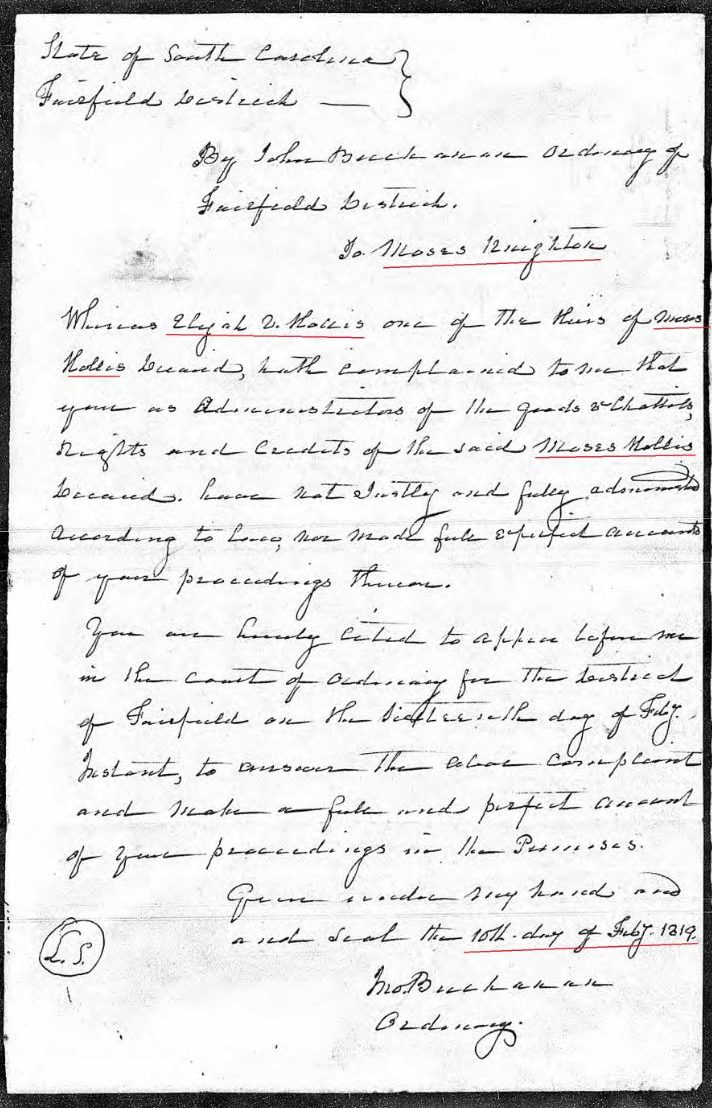 State of South Carolina
Fairfield District
By John Buchanan Ordinary of
Fairfield District.
To Moses Knighton
Whereas Elijah V. Hollis one of the Heirs of Moses
Hollis Deceased, hath complained to me that
you as Administrators of the goods & Chattels,
Rights and Credits of the said Moses Hollis
Deceased. have not Justly and fully administd
According to Law, nor made full & perfect accounts
of your proceedings thereon.
You are hereby Cited to appear before me
in the Court of Ordinary for the District
of Fairfield on the Sixteenth day of Feby.
Instant, to answer the above Complaint
and make a full and perfect account
of your proceedings in the Premises.
Given under my hand and
and seal the 10th. day of Feby. 1819.
L. S.
Jno. Buchanan
Ordinary.